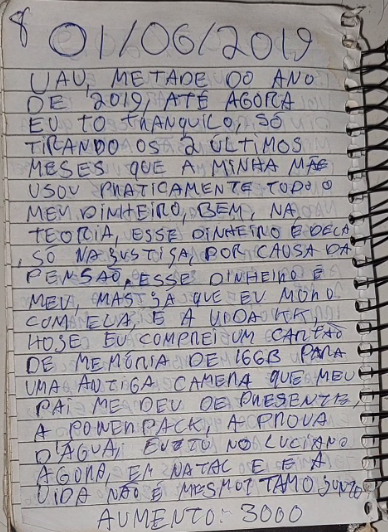 8
01/06/2019
UAU, METADE DO ANO
DE 2019, ATÉ AGORA
EU TO TRANQUILO, SÓ
TIRANDO OS 2 ÚLTIMOS
MESES QUE A MINHA MÃE
USOU PRATICAMENTE TODO O
MEU DINHEIRO, BEM, NA
TEORIA, ESSE DINHEIRO E DELA
, SÓ NA JUSTIÇA, POR CAUSA DA
PENSÃO, ESSE DINHEIRO É
MEU, MAS JA QUE EU MORO
COM ELA, E A VIDA KK
HOJE EU COMPREI UM CARTÃO
DE MEMÓRIA DE 16GB PARA
UMA ANTIGA CAMERA QUE MEU
PAI ME DEU DE PRESENTE,
A POWERPACK, A PROVA
D'AGUA, EU TO NO LUCIANO
AGORA, EM NATAL E E A
VIDA NÃO É MESMO? TAMO JUNTO
AUMENTO: 3000